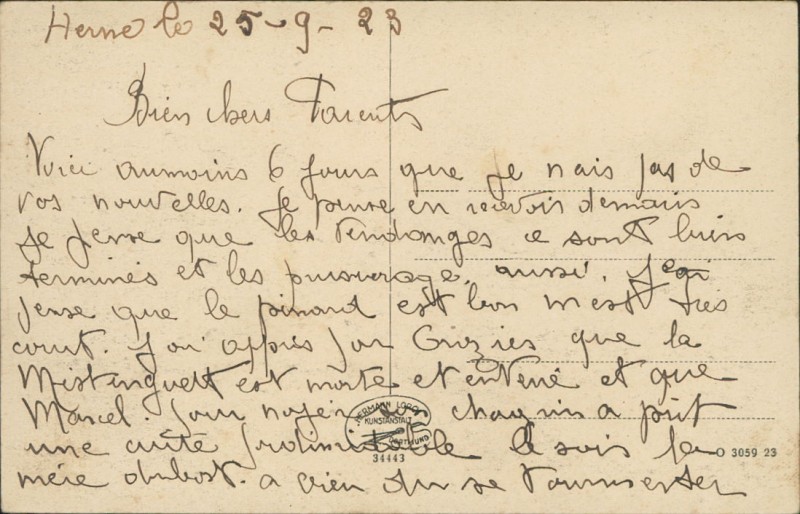 Herne le 25-9-23
Bien chers Parents
Voici aumoins 6 jours que je nais pas de
vos nouvelles. Je pense en recevoir demain
Je pense que les Vendanges ce sont bien
terminés et les aussi.
pense que le pinard est bon mest très
court. J'ai appris par que la
Mistinguett est morte et enterré et que
Marcel. pour noyer son chagrin a prit
une cuite le soir
mère dubost. a bien du se tourmenter
HERMANN LORCH
KUNSTANSTALT
DORTMUND
34443
O 3059 23